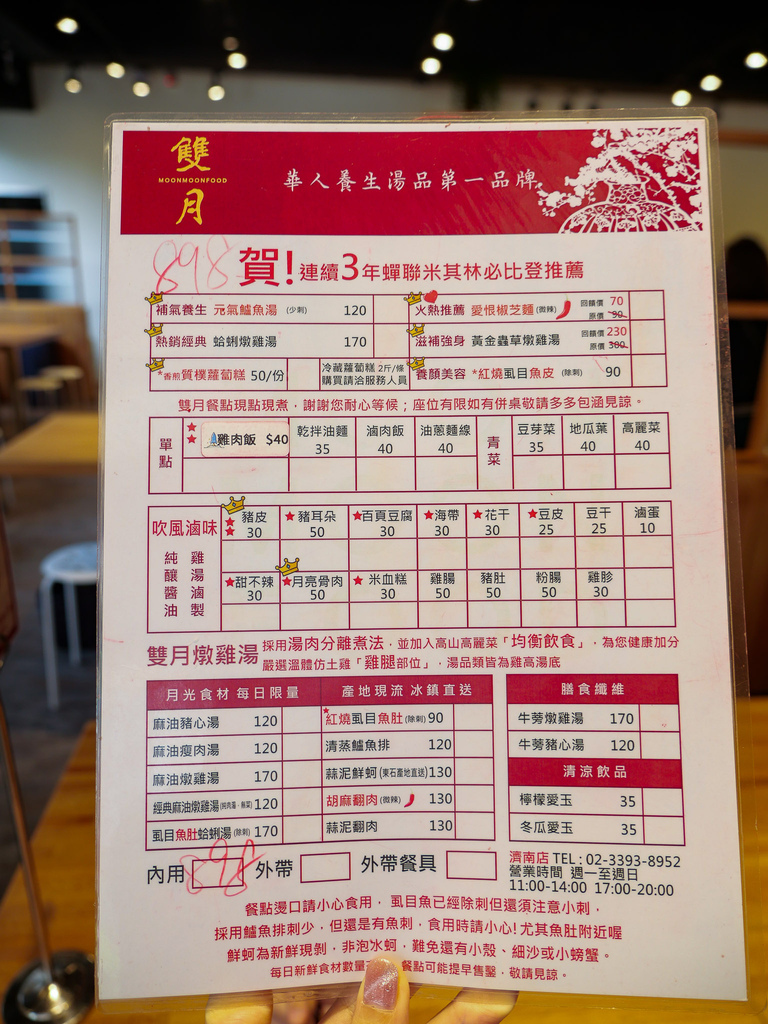 雙月
MOONMOONFOOD
華人養生湯品第一品牌
898
賀!連續3年蟬聯米其林必比登推薦
補氣養生 元氣鱸魚湯 (少刺) 120
火熱推薦 愛恨椒芝麵 (微辣) 回饋價 70 原價 90
熱銷經典 蛤蜊燉雞湯 170
滋補強身 黃金蟲草燉雞湯 回饋價 230 原價 300
*香煎質樸蘿蔔糕 50/份
冷藏蘿蔔糕 2斤/條
購買請洽服務人員
養顏美容 *紅燒虱目魚皮 (除刺) 90
雙月餐點現點現煮,謝謝您耐心等候;座位有限如有併桌敬請多多包涵見諒。
單點 雞肉飯 $40 乾拌油麵 35 滷肉飯 40 油蔥麵線 40
青菜 豆芽菜 35 地瓜葉 40 高麗菜 40
吹風滷味
純釀醬油 雞湯滷製
豬皮 30 豬耳朵 50 百頁豆腐 30 海帶 30 花干 30 豆皮 25 豆干 25 滷蛋 10
甜不辣 30 月亮骨肉 50 米血糕 30 雞腸 50 豬肚 50 粉腸 50 雞胗 30
雙月燉雞湯 採用湯肉分離煮法,並加入高山高麗菜「均衡飲食」,為您健康加分
嚴選溫體仿土雞「雞腿部位」,湯品類皆為雞高湯底
月光食材 每日限量
麻油豬心湯 120
麻油瘦肉湯 120
麻油燉雞湯 170
經典麻油燉雞湯 120
虱目魚肚蛤蜊湯 (除刺) 170
產地現流 冰鎮直送
*紅燒虱目魚肚 (除刺) 90
清蒸鱸魚排 120
蒜泥鮮蚵 (東石產地直送) 130
胡麻翻肉 (微辣) 130
蒜泥翻肉 130
膳食纖維
牛蒡燉雞湯 170
牛蒡豬心湯 120
清涼飲品
檸檬愛玉 35
冬瓜愛玉 35
內用 898 外帶 外帶餐具
濟南店 TEL : 02-3393-8952
營業時間 週一至週日
11:00-14:00 17:00-20:00
餐點燙口請小心食用,虱目魚已經除刺但還須注意小刺,
採用鱸魚排刺少,但還是有魚刺,食用時請小心!尤其魚肚附近喔
鮮蚵為新鮮現剝,非泡水蚵,難免還有小殼、細沙或小螃蟹。
每日新鮮食材數量 餐點可能提早售罄,敬請見諒。